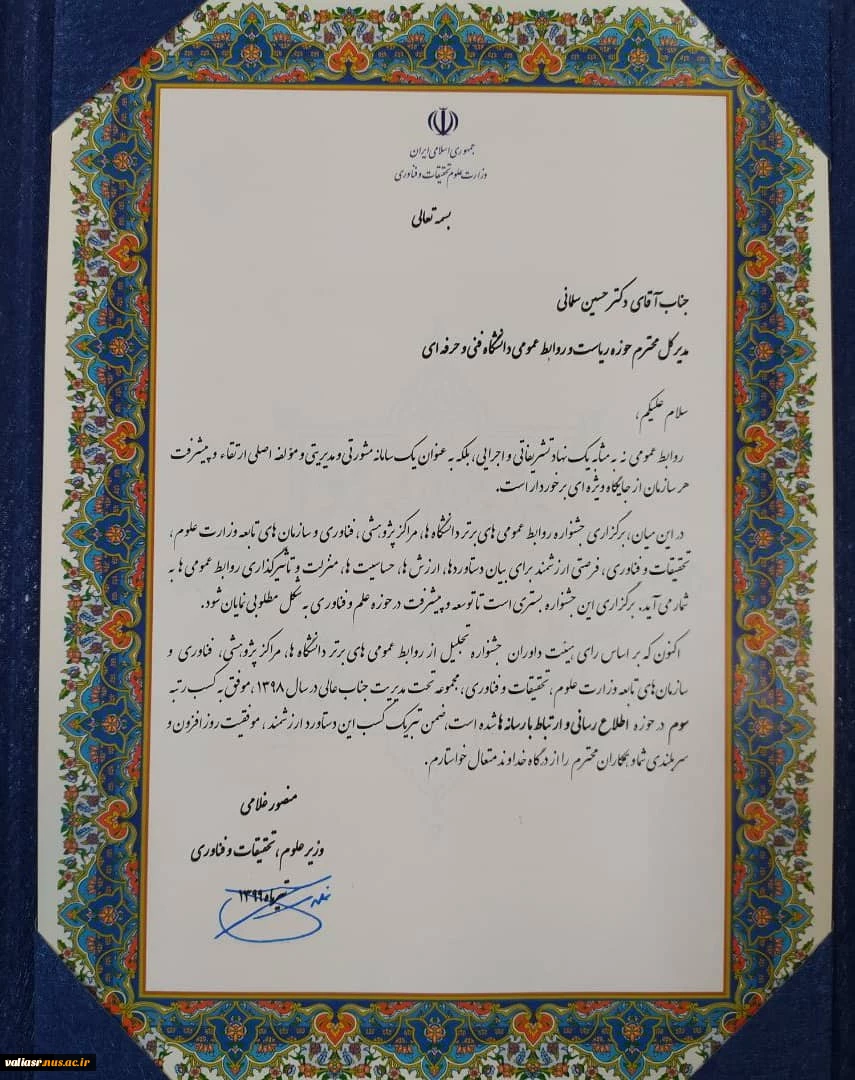 جمهوری اسلامی ایران
وزارت علوم تحقیقات و فناوری
بسمه تعالی
جناب آقای دکتر حسین سلمانی
مدیر کل محترم حوزه ریاست و روابط عمومی دانشگاه فنی و حرفه ای
سلام علیکم،
روابط عمومی نه به مثابه یک نهاد تشریفاتی و اجرایی، بلکه به عنوان یک سامانه مشورتی و مدیریتی و مؤلفه اصلی ارتقاء و پیشرفت
هر سازمان از جایگاه ویژه ای برخوردار است.
در این میان، برگزاری جشنواره روابط عمومی های برتر دانشگاه ها، مراکز پژوهشی، فناوری و سازمان های تابعه وزارت علوم،
تحقیقات و فناوری، فرصتی ارزشمند برای بیان دستاوردها، ارزش ها، حساسیت ها، منزلت و تأثیرگذاری روابط عمومی ها به
شمار می آید. برگزاری این جشنواره بستری است تا توسعه و پیشرفت در حوزه علم و فناوری به شکل مطلوبی نمایان شود.
اکنون که بر اساس رای هیئت داوران جشنواره تجلیل از روابط عمومی های برتر دانشگاه ها، مراکز پژوهشی، فناوری و
سازمان های تابعه وزارت علوم، تحقیقات و فناوری، مجموعه تحت مدیریت جناب عالی در سال ۱۳۹۸، موفق به کسب رتبه
سوم در حوزه اطلاع رسانی و ارتباط با رسانه ها شده است، ضمن تبریک کسب این دستاورد ارزشمند، موفقیت روز افزون و
سربلندی شما و همکاران محترم را از درگاه خداوند متعال خواستارم.
منصور غلامی
وزیر علوم، تحقیقات و فناوری
تیرماه ۱۳۹۹
valiasr.nus.ac.ir